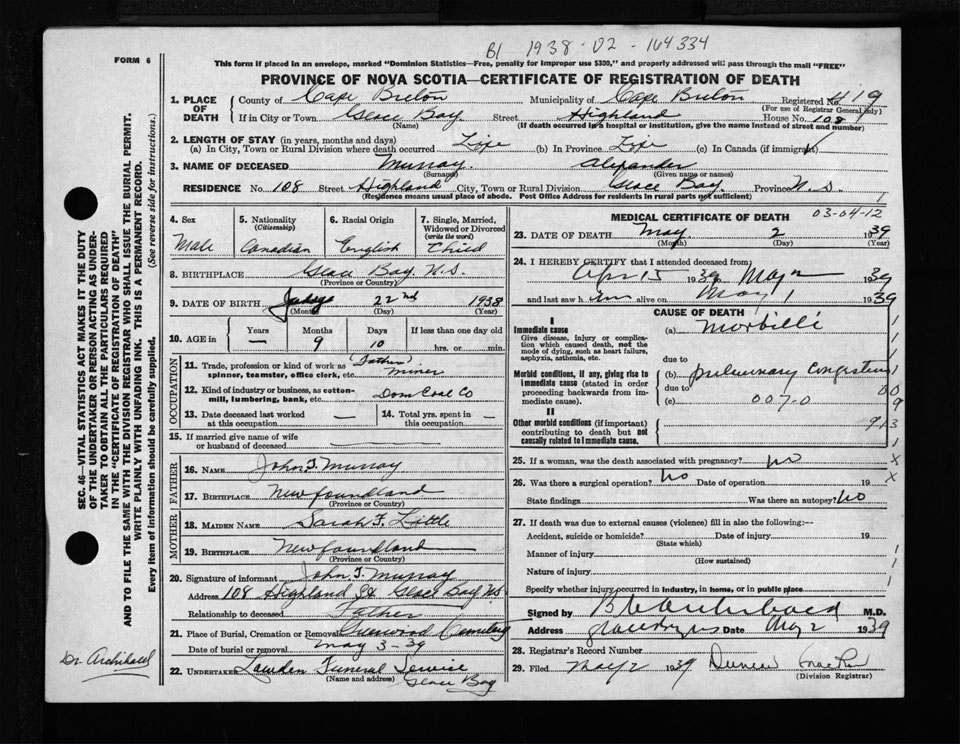 B1 1938-02-164334
FORM 6
This form if placed in an envelope, marked "Dominion Statistics—Free, penalty for improper use $300," and properly addressed will pass through the mail "FREE"
PROVINCE OF NOVA SCOTIA—CERTIFICATE OF REGISTRATION OF DEATH
1. PLACE OF DEATH County of Cape Breton Municipality of Cape Breton Registered No. 419
(For use of Registrar General only)
If in City or Town Glace Bay Street Highland House No. 108
(Name) (If death occurred in a hospital or institution, give the name instead of street and number)
2. LENGTH OF STAY (in years, months and days)
(a) In City, Town or Rural Division where death occurred Life (b) In Province Life (c) In Canada (if immigrant)
3. NAME OF DECEASED Murray Alexander
(Surname) (Given name or names)
RESIDENCE No. 108 Street Highland City, Town or Rural Division Glace Bay Province N.S.
(Residence means usual place of abode. Post Office Address for residents in rural parts not sufficient)
4. Sex 5. Nationality (Citizenship) 6. Racial Origin 7. Single, Married, Widowed or Divorced (write the word)
Male Canadian English Child
8. BIRTHPLACE Glace Bay N.S.
(Province or Country)
9. DATE OF BIRTH 22nd 1938
(Month) (Day) (Year)
10. AGE in Years Months Days If less than one day old
— 9 10 hrs. or min.
OCCUPATION
(Father)
11. Trade, profession or kind of work as spinner, teamster, office clerk, etc. miner
12. Kind of industry or business, as cotton-mill, lumbering, bank, etc. Dom Coal Co
13. Date deceased last worked at this occupation — 14. Total yrs. spent in this occupation —
15. If married give name of wife or husband of deceased
FATHER
16. NAME John T. Murray
17. BIRTHPLACE Newfoundland
(Province or Country)
MOTHER
18. MAIDEN NAME Sarah F. Little
19. BIRTHPLACE Newfoundland
(Province or Country)
20. Signature of informant John T. Murray
Address 108 Highland St Glace Bay N.S.
Relationship to deceased Father
21. Place of Burial, Cremation or Removal Greenwood Cemetery
Date of burial or removal May 3-39
22. UNDERTAKER Lowden Funeral Service
(Name and address)
Glace Bay
MEDICAL CERTIFICATE OF DEATH
03-04-12
23. DATE OF DEATH May 2 1939
(Month) (Day) (Year)
24. I HEREBY CERTIFY that I attended deceased from
Apr 15 1939 May 2 1939
and last saw him alive on May 1 1939
CAUSE OF DEATH
I
Immediate cause
Give disease, injury or complication which caused death, not the mode of dying, such as heart failure, asphyxia, asthenia, etc.
(a) Morbilli
due to
Morbid conditions, if any, giving rise to immediate cause (stated in order proceeding backwards from immediate cause).
(b) pulmonary congestion
due to
(c) 007-0
II
Other morbid conditions (if important) contributing to death but not causally related to immediate cause.
25. If a woman, was the death associated with pregnancy? No
26. Was there a surgical operation? No Date of operation 19
State findings Was there an autopsy? No
27. If death was due to external causes (violence) fill in also the following:—
Accident, suicide or homicide? Date of injury 19
(State which)
Manner of injury
(How sustained)
Nature of injury
Specify whether injury occurred in industry, in home, or in public place
Signed by Archibald M.D.
Address Date May 2 1939
28. Registrar's Record Number
29. Filed May 2 1939 Duncan
(Division Registrar)
SEC. 46—VITAL STATISTICS ACT MAKES IT THE DUTY
OF THE UNDERTAKER OR PERSON ACTING AS UNDER-
TAKER TO OBTAIN ALL THE PARTICULARS REQUIRED
IN THE "CERTIFICATE OF REGISTRATION OF DEATH"
AND TO FILE THE SAME WITH THE DIVISION REGISTRAR WHO SHALL ISSUE THE BURIAL PERMIT.
WRITE PLAINLY WITH UNFADING INK. THIS IS A PERMANENT RECORD.
Every item of information should be carefully supplied. (See reverse side for instructions.)
Dr. Archibald